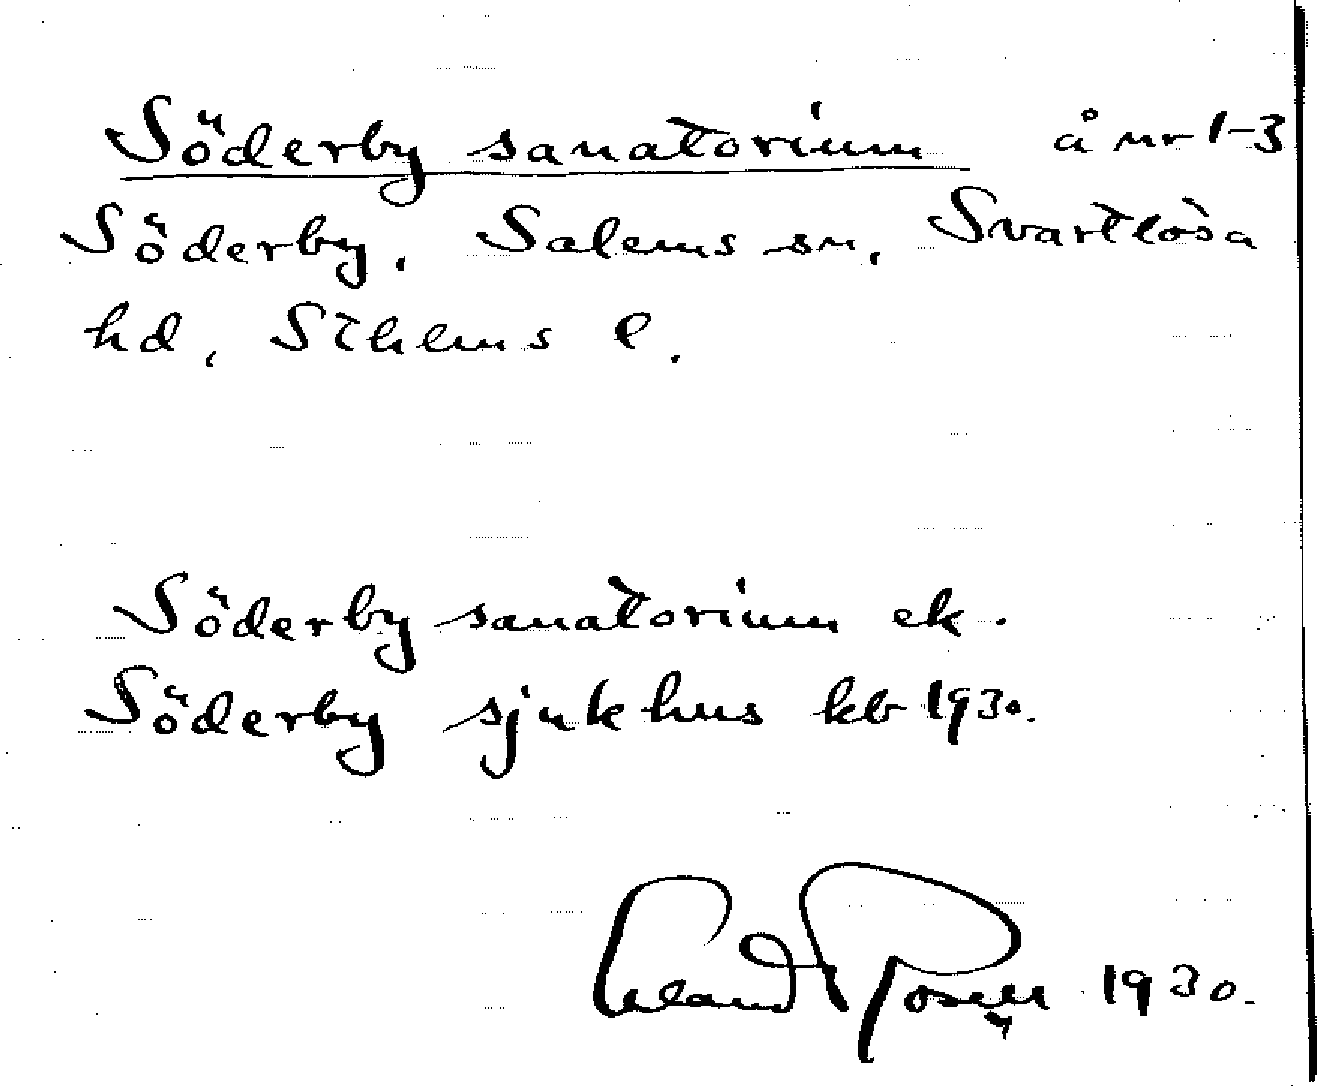 Söderby sanatorium å nr 1-3
Söderby, Salems sn, Svartlösa
hd, Sthlms l.
Söderby sanatorium ek.
Söderby sjukhus kb 1930.
Erland Rosell 1930.